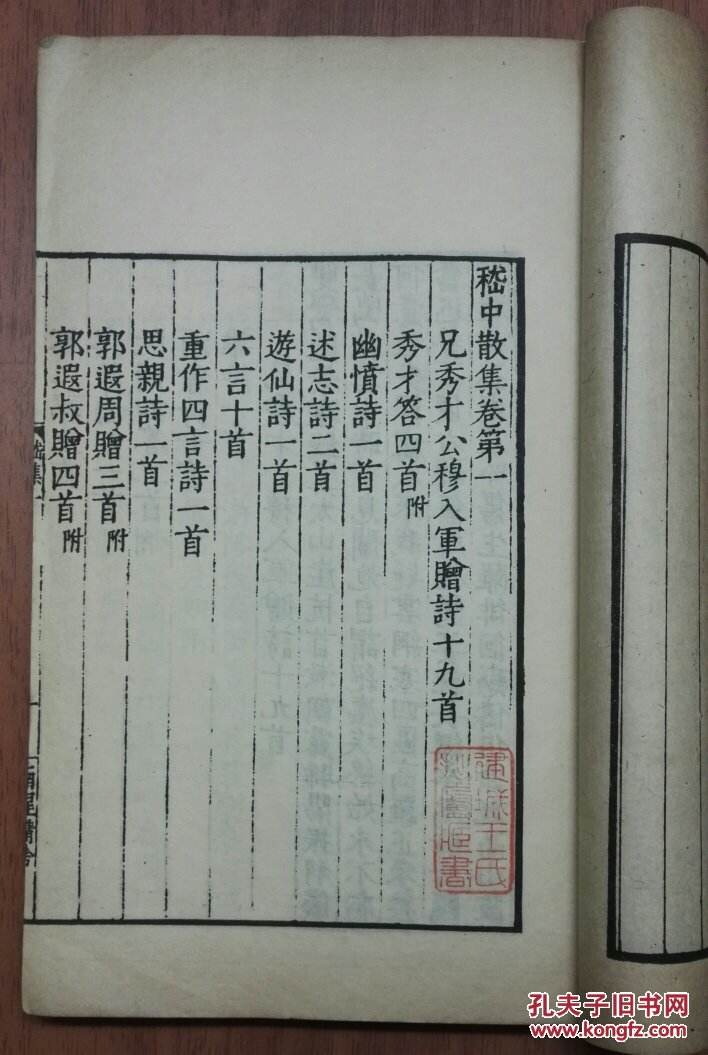 嵇中散集卷第一
兄秀才公穆入軍贈詩十九首
秀才答四首附
幽憤詩一首
述志詩二首
遊仙詩一首
六言十首
重作四言詩一首
思親詩一首
郭遐周贈三首附
郭遐叔贈四首附
嵇集一
一
建城王氏
書
孔夫子旧书网
www.kongfz.com